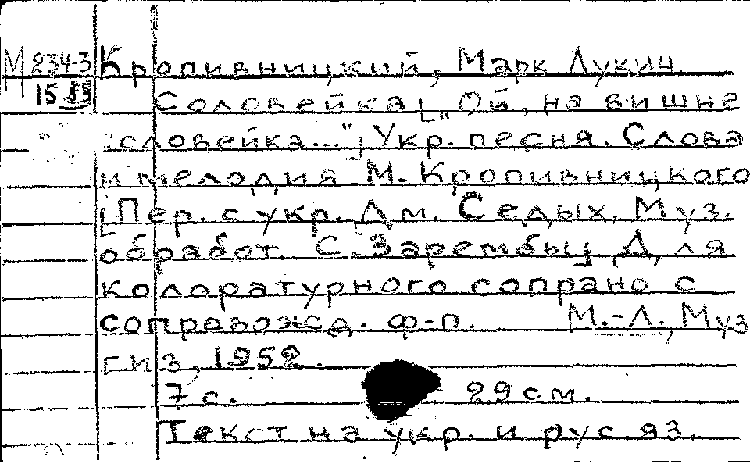 М 234-3 Кропивницкий, Марк Лукич
15 Соловейка ["Ой, на вишне
словейка..."] Укр. песня. Слова
и мелодия М. Кропивницкого
[Пер. с укр. Дм. Седых, Муз.
обработ. С. Зарембы] Для
колоратурного сопрано с
сопровожд. ф-п. М.-Л., Муз
гиз, 1952.
7 с. 29 см.
Текст на укр. и рус. яз.